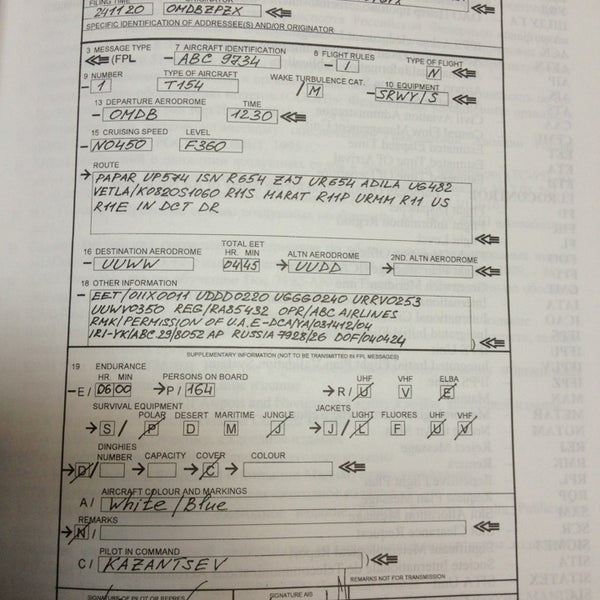 FILING TIME ORIGINATOR
241120 OMDBZPZX
SPECIFIC IDENTIFICATION OF ADDRESSEE(S) AND/OR ORIGINATOR
3 MESSAGE TYPE 7 AIRCRAFT IDENTIFICATION 8 FLIGHT RULES TYPE OF FLIGHT
(FPL - ABC 9734 - I N
9 NUMBER TYPE OF AIRCRAFT WAKE TURBULENCE CAT. 10 EQUIPMENT
- 1 T154 / M - SRWY/S
13 DEPARTURE AERODROME TIME
- OMDB 1230
15 CRUISING SPEED LEVEL
- N0450 F360
ROUTE
PAPAR UP574 ISN R654 ZAJ UR654 ADILA UG482
VETLA/K0820S1060 R11S MARAT R11P URMM R11 US
R11E IN DCT DR
TOTAL EET
16 DESTINATION AERODROME HR. MIN ALTN AERODROME 2ND. ALTN AERODROME
- UUWW 0445 → UUDD →
18 OTHER INFORMATION
- EET/OIIX0011 UDDD0220 UGGG0240 URRV0253
UUWV0350 REG/RA85432 OPR/ABC AIRLINES
RMK/PERMISSION OF U.A.E-DCA/YA/031412/04
IRI-YK/ABC 29/8052 AP RUSSIA 7928/26 DOF/040424 )
SUPPLEMENTARY INFORMATION (NOT TO BE TRANSMITTED IN FPL MESSAGES)
19 ENDURANCE
HR MIN PERSONS ON BOARD UHF VHF ELBA
- E / 0600 → P / 164 → R / U V E
SURVIVAL EQUIPMENT JACKETS
POLAR DESERT MARITIME JUNGLE LIGHT FLUORES UHF VHF
→ S / P D M J → J / L F U V
DINGHIES
NUMBER CAPACITY COVER COLOUR
→ D / → → C →
AIRCRAFT COLOUR AND MARKINGS
A / White/Blue
REMARKS
→ N /
PILOT IN COMMAND
C / KAZANTSEV )
REMARKS NOT FOR TRANSMISSION
SIGNATURE OF PILOT OR REPRES. SIGNATURE AIS